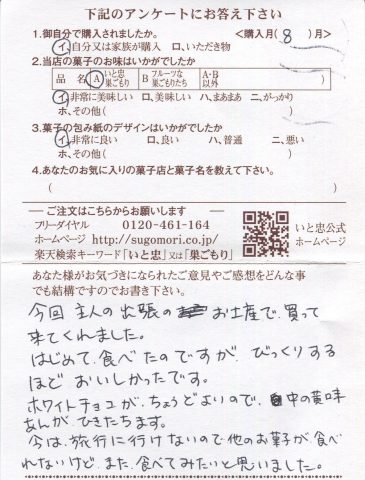 下記のアンケートにお答え下さい
1.御自分で購入されましたか。 <購入月( 8 )月>
イ.自分又は家族が購入 ロ、いただき物
2.当店の菓子のお味はいかがでしたか
品 名 A いと忠巣ごもり B フルーツな巣ごもりたち A・B以外 ( )
イ.非常に美味しい ロ、美味しい ハ、まあまあ ニ、がっかり
ホ、その他( )
3.菓子の包み紙のデザインはいかがでしたか
イ.非常に良い ロ、良い ハ、普通 ニ、悪い
ホ、その他( )
4.あなたのお気に入りの菓子店と菓子名を教えて下さい。
( )
― ご注文はこちらからお願いします ―
フリーダイヤル 0120-461-164
ホームページ http://sugomori.co.jp/
楽天検索キーワード「いと忠」又は「巣ごもり」
いと忠公式
ホームページ
あなた様がお気づきになられたご意見やご感想をどんな事
でも結構ですのでお書き下さい。
今回 主人の出張の お土産で、買って
来てくれました。
はじめて、食べたのですが、びっくりする
ほど おいしかったです。
ホワイトチョコが、ちょうどよいので、中の黄味
あんが、ひきたちます。
今は、旅行に行けないので他のお菓子が食べ
れないけど、また、食べてみたいと思いました。